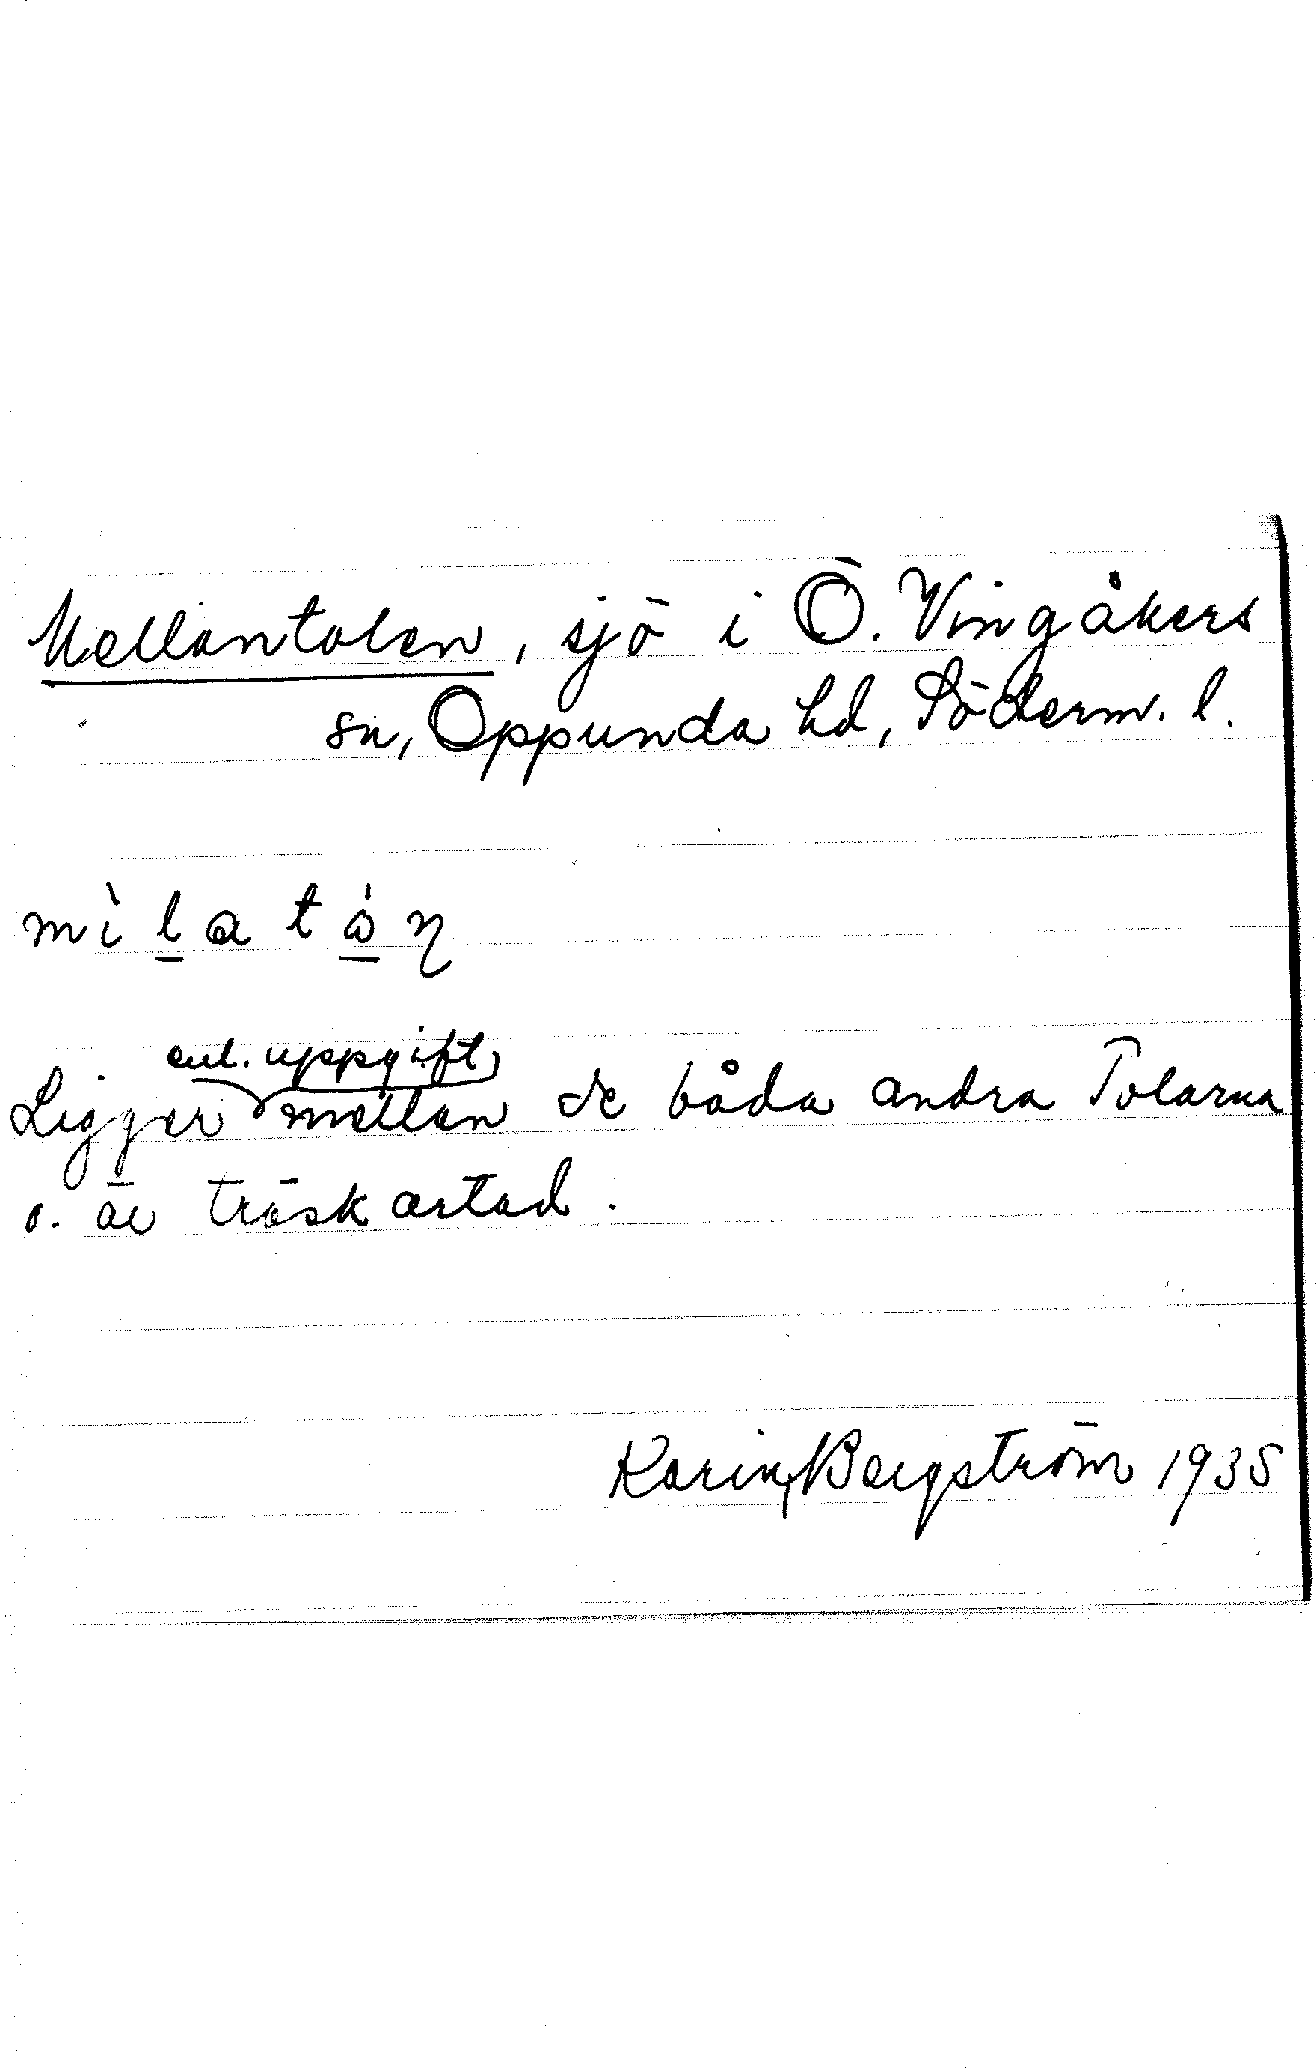 Mellantolen, sjö i Ö. Vingåkers
sn, Oppunda hd, Söderm. l.
mìlatȧ́ŋ
enl. uppgift
Ligger mellan de båda andra Tolarna
o. är träskartad.
Karin Bergström 1935